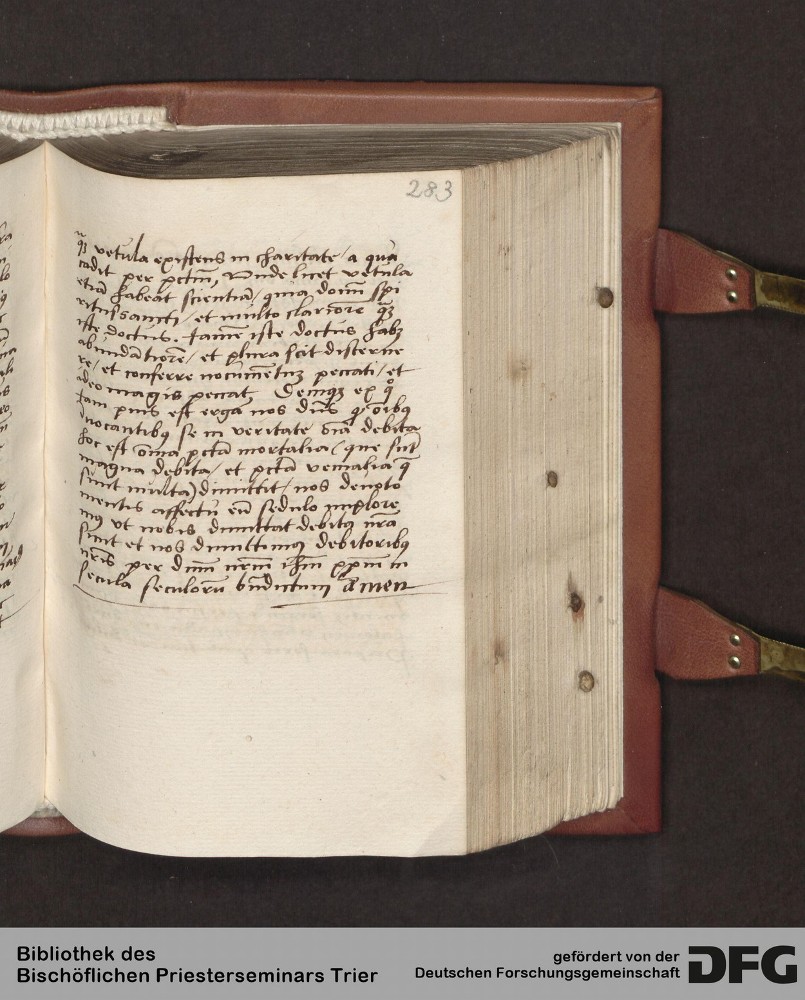 283
qȝ vetula existens in charitate / a qua
cadit per pctm̄, Vnde licet vetula
etiā habeat scientiā / quia donū spi
ritussancti / et multo clariorē qȝ
iste doctus. tamē iste doctus habȝ
abundātiorē / et plura scit discerne
re / et conferre nocumētuȝ peccati / et
ideo magis peccat. Deniqȝ ex quo
tam pius est erga nos dn̄s qd̄ oībꝰ
inuocantibꝰ se in veritate oīa debita
hoc est om̄ia pctā mortalia (que sūt
magna debita / et pctā venialia q̄
sunt multa) dimittit / nos deuoto
mentis affectu eū sedulo implore
mꝰ vt nobis dimittat debita nr̄a
sicut et nos dimittimꝰ debitoribꝰ
nr̄is per dn̄m nr̄m ih̄m xp̄um in
secula seculorū bn̄dictum Amen
Bibliothek des
Bischöflichen Priesterseminars Trier
gefördert von der
Deutschen Forschungsgemeinschaft
DFG